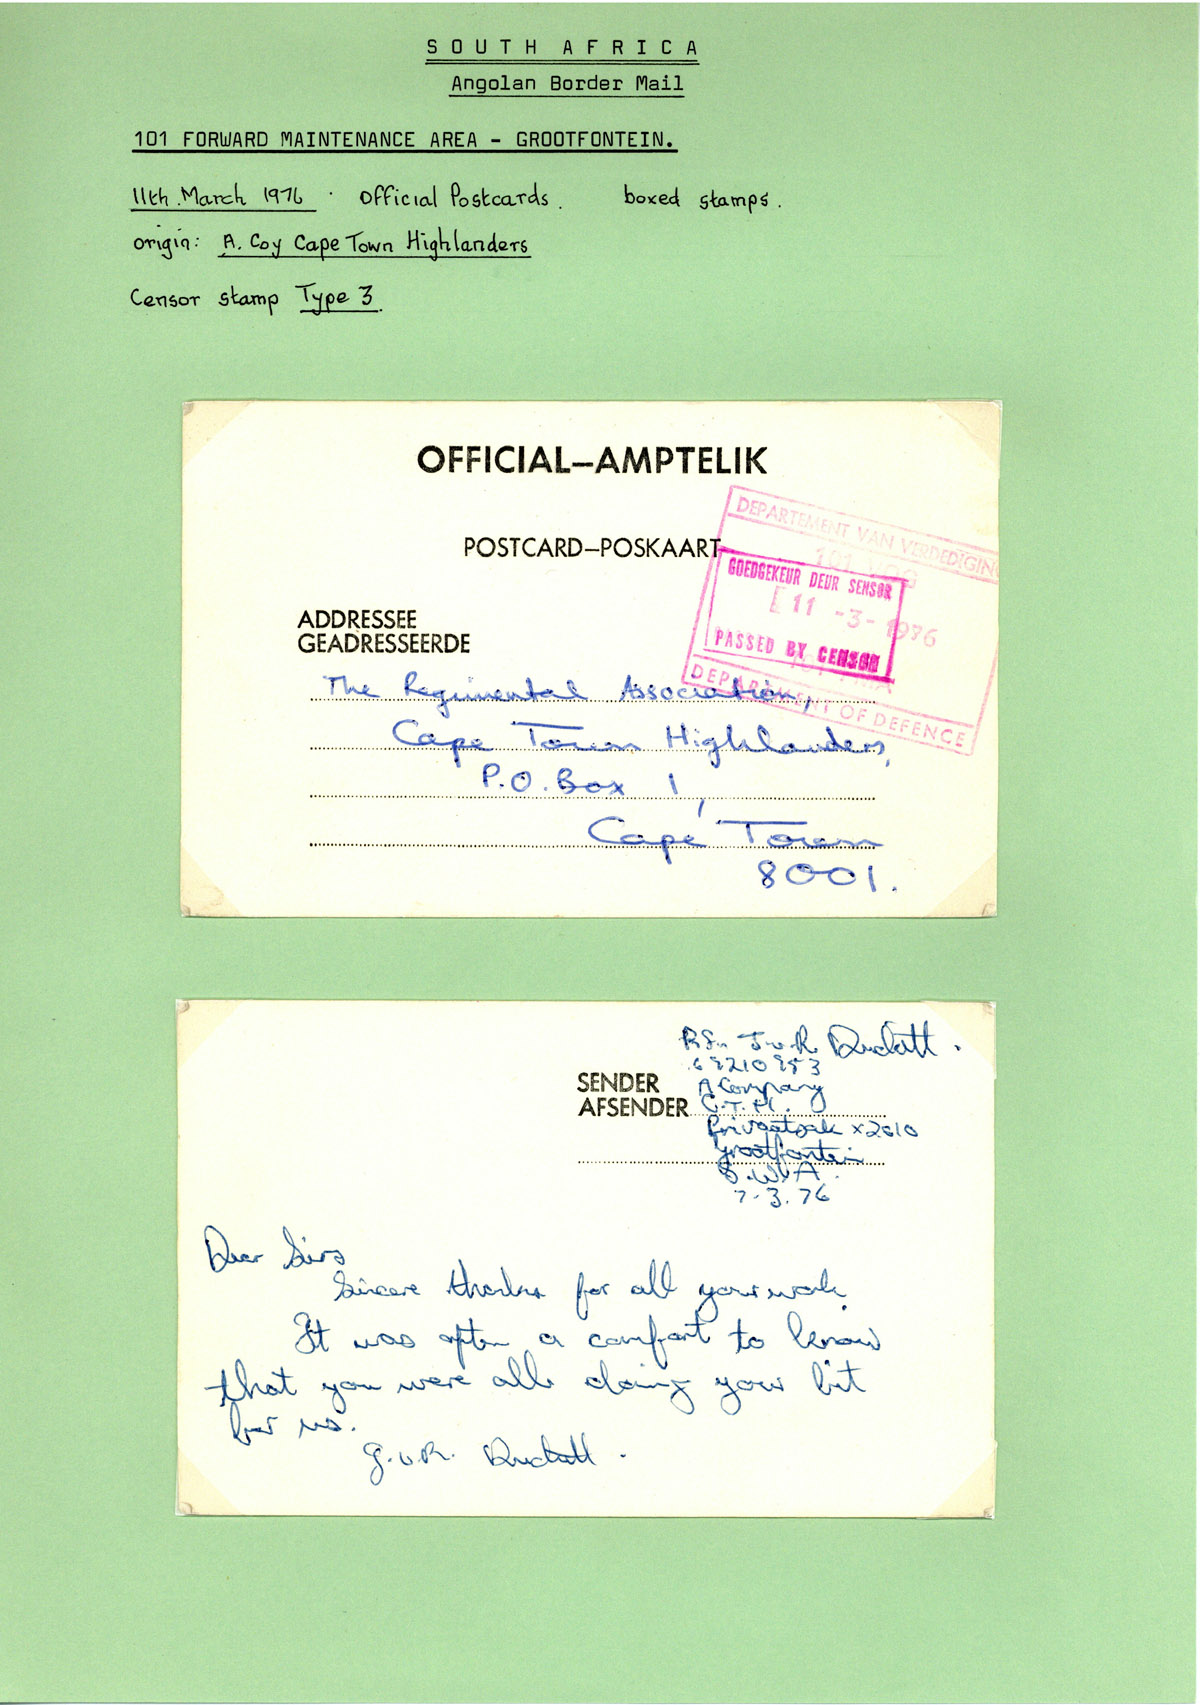 SOUTH AFRICA
Angolan Border Mail
101 FORWARD MAINTENANCE AREA - GROOTFONTEIN.
11th March 1976 · Official Postcards. boxed stamps.
origin: A. Coy Cape Town Highlanders
Censor stamp Type 3.
OFFICIAL–AMPTELIK
POSTCARD–POSKAART
DEPARTEMENT VAN VERDEDIGING
101 VOG
GOEDGEKEUR DEUR SENSOR
11 -3- 1976
PASSED BY CENSOR
DEPARTMENT OF DEFENCE
ADDRESSEE
GEADRESSEERDE
The Regimental Association,
Cape Town Highlanders,
P.O. Box 1,
Cape Town
8001.
Duckitt.
SENDER
AFSENDER
A Company
C.T.H.
Privaatsak x2010
Grootfontein
S.W.A.
7.3.76
Dear Sirs
Sincere thanks for all your work.
It was often a comfort to know
that you were all doing your bit
for us.
Duckitt.